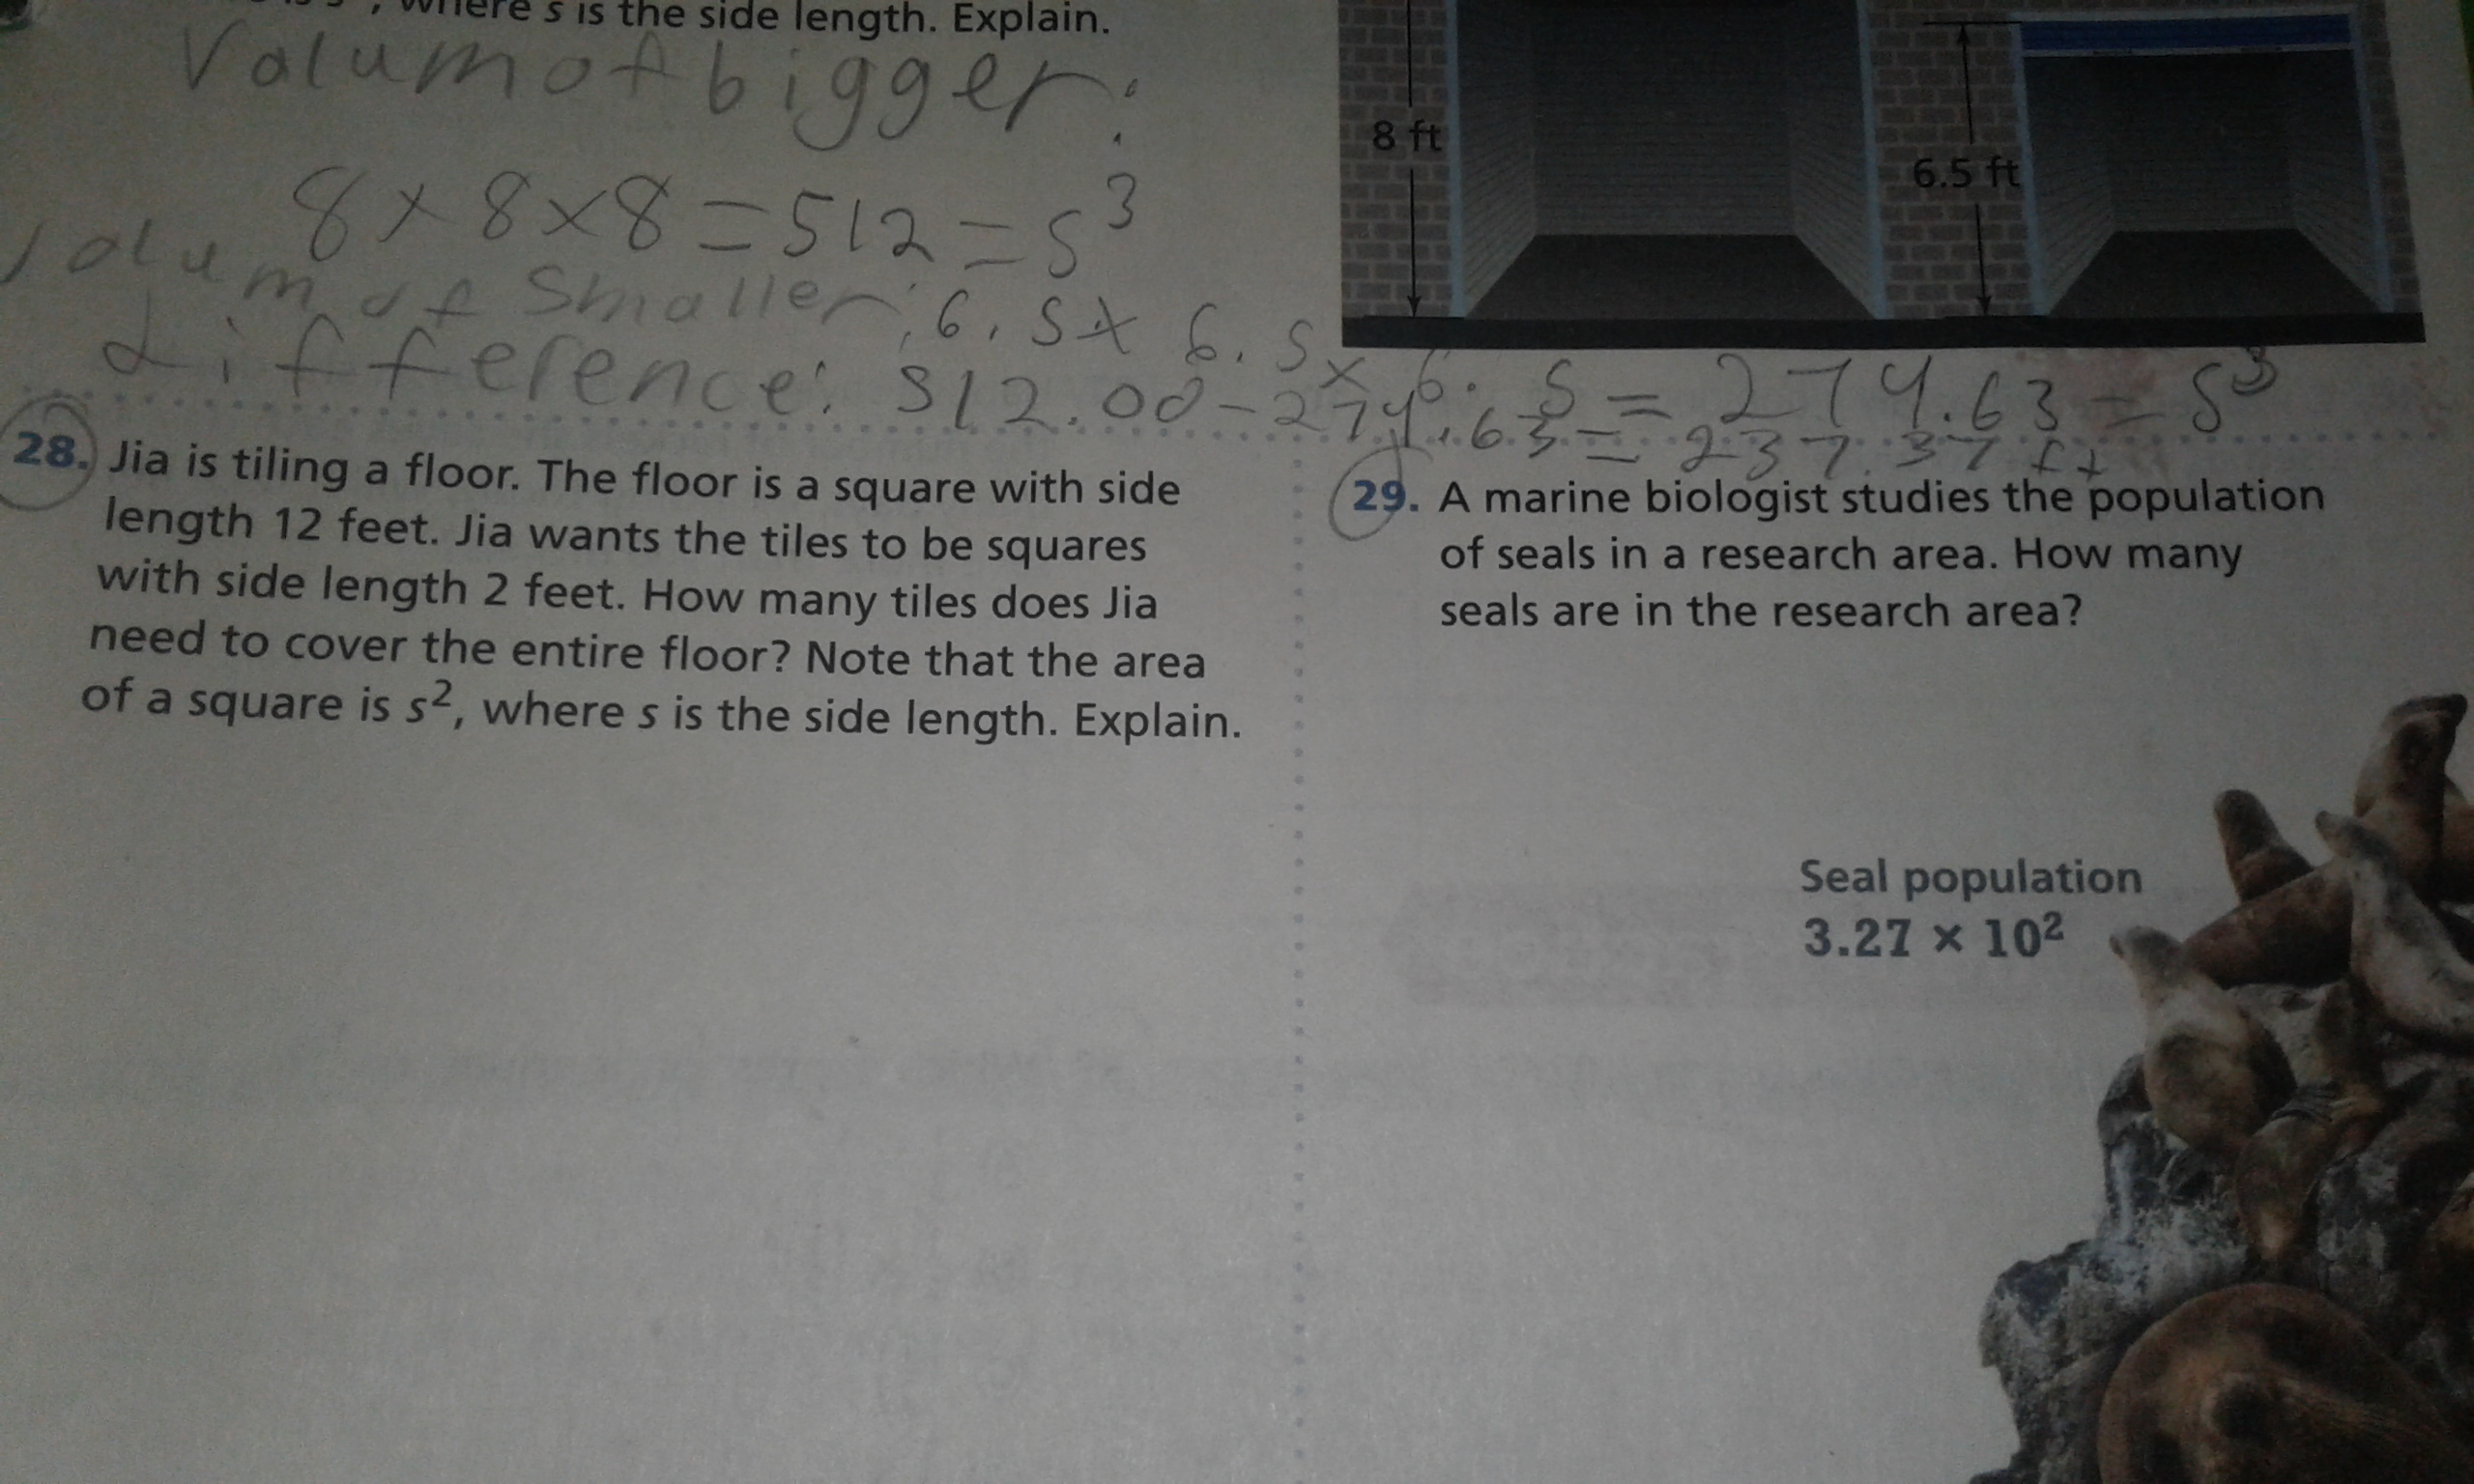 , where s is the side length. Explain.
Volum of bigger:
8 × 8 × 8 = 512 = s³
Volum of smaller: 6.5 × 6.5 × 6.5 = 274.63 = s³
difference: 512.00 - 274.63 = 237.37 ft
8 ft
6.5 ft
28. Jia is tiling a floor. The floor is a square with side
length 12 feet. Jia wants the tiles to be squares
with side length 2 feet. How many tiles does Jia
need to cover the entire floor? Note that the area
of a square is s², where s is the side length. Explain.
29. A marine biologist studies the population
of seals in a research area. How many
seals are in the research area?
Seal population
3.27 × 10²